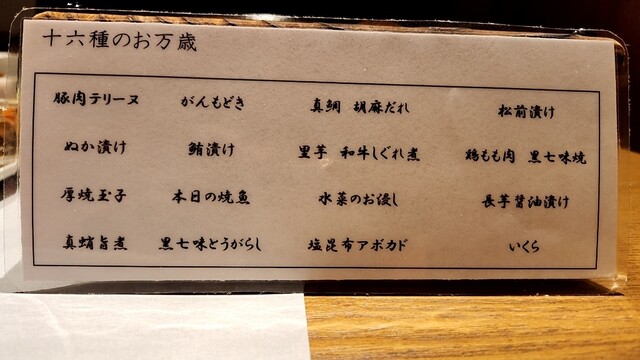 十六種のお万歳
豚肉テリーヌ がんもどき 真鯛 胡麻だれ 松前漬け
ぬか漬け 鮪漬け 里芋 和牛しぐれ煮 鶏もも肉 黒七味焼
厚焼玉子 本日の焼魚 水菜のお浸し 長芋醤油漬け
真蛸旨煮 黒七味とうがらし 塩昆布アボカド いくら